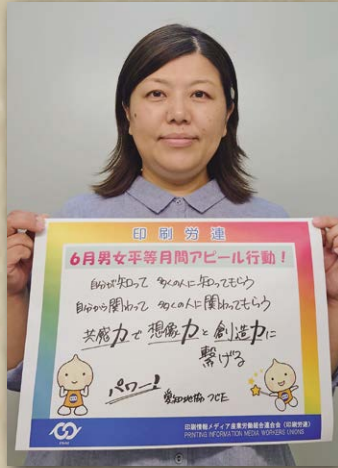 印刷労連
6月男女平等月間アピール行動！
自分が知って 多くの人に知ってもらう
自分から関わって 多くの人に関わってもらう
共感力で想像力と創造力に
繋げる
パワー！
愛知地協
印刷情報メディア産業労働組合連合会（印刷労連）
PRINTING INFORMATION MEDIA WORKERS UNIONS